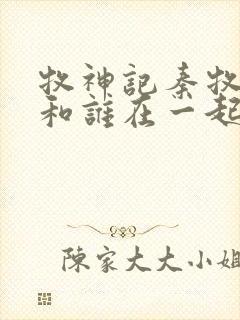 牧神記秦牧
和誰在一起
陳家大大小姐